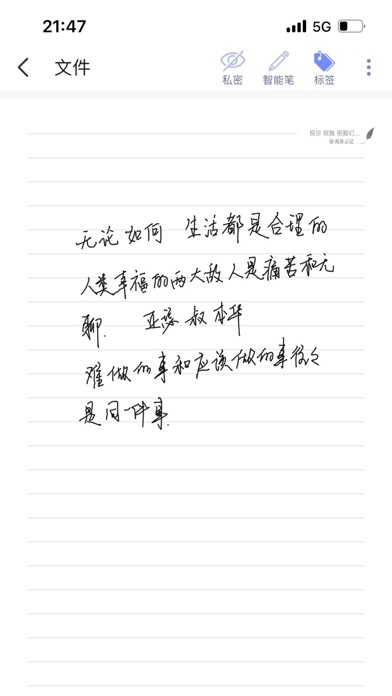 21:47 5G
文件 私密 智能笔 标签
祝你 祝我 祝我们...
无论如何 生活都是合理的
人类幸福的两大敌人是痛苦和无
聊. 亚瑟 叔本华
难做的事和应该做的事往々
是同一件事.